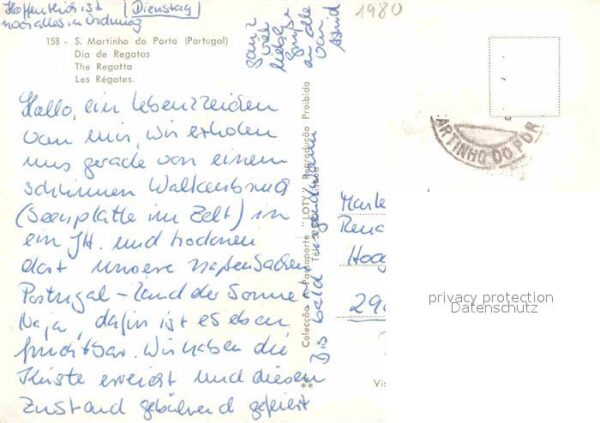 Hoffentlich ist
noch alles in Ordnung
(Dienstag)
1980
158 - S. Martinho do Porto (Portugal)
Dia de Regatas
The Regatta
Les Régates.
Ganz
viele
liebe
Grüße
an alle
von
Astrid
Hallo, ein Lebenszeichen
von mir, wir erholen
uns gerade von einem
schlimmen Wolkenbruch
(Seenplatte im Zelt) in
ein JH. und trocknen
dort unsere nassen Sachen
Portugal - Land der Sonne
Naja, dafür ist es eben
fruchtbar. Wir haben die
Küste erreicht und diesen
Zustand gebührend gefeiert
Bis bald
Colecção Passaporte "LOTY" Reprodução Proibida
ARTINHO DO POR
Marle
Rena
Hoog
290
privacy protection
Datenschutz
Vis